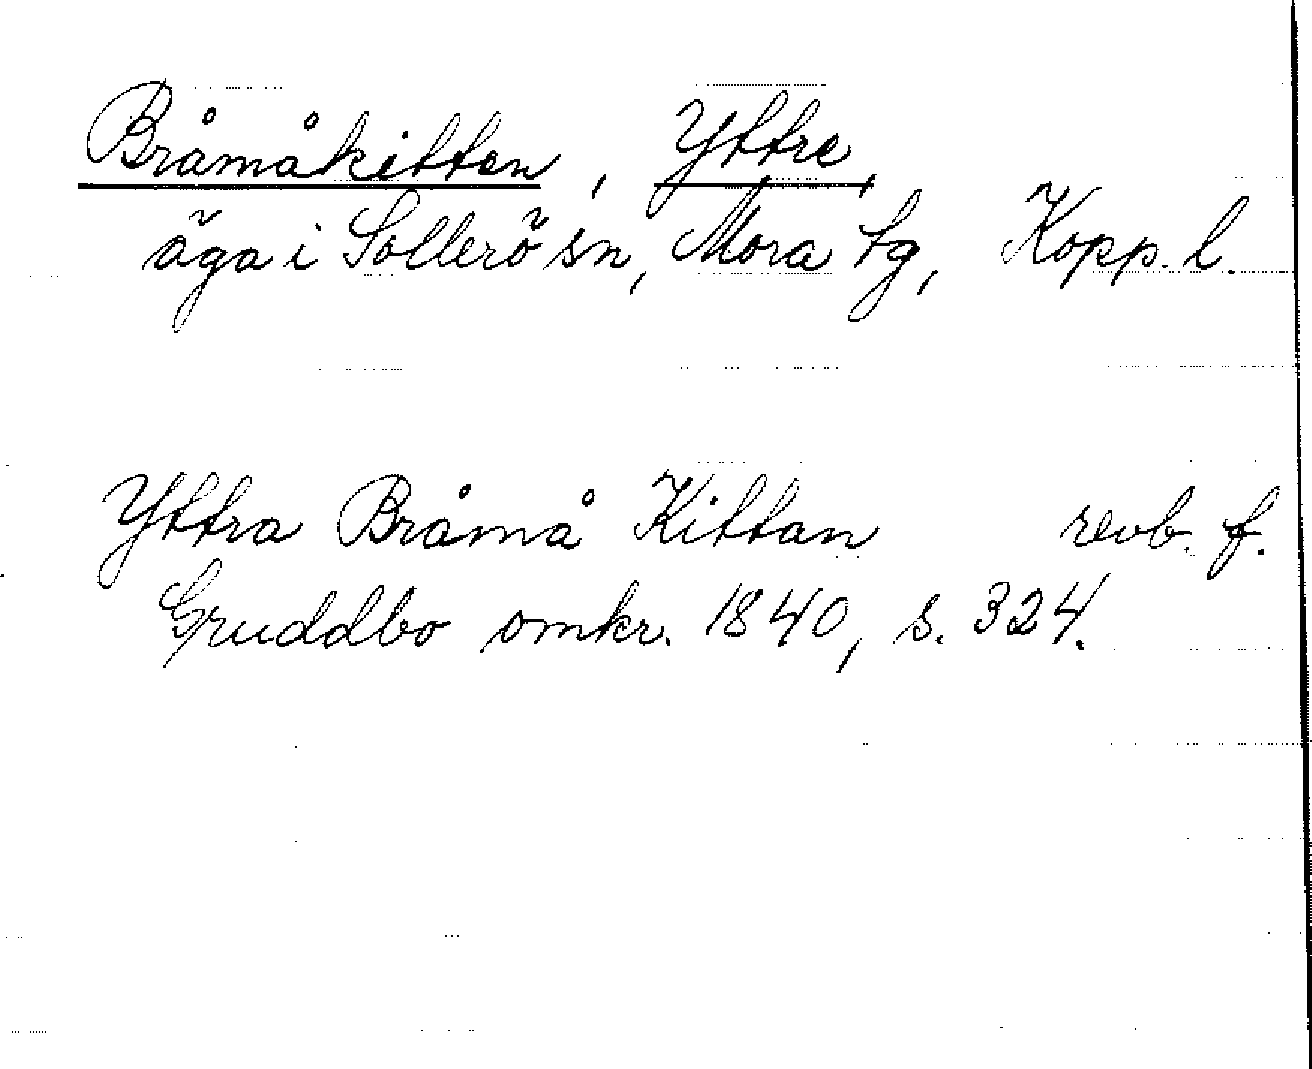 Bråmåkitten, Yttre,
äga i Sollerö sn, Mora tg, Kopp. l.
Yttra Bråmå Kittan revb. f.
Gruddbo omkr. 1840, s. 324.